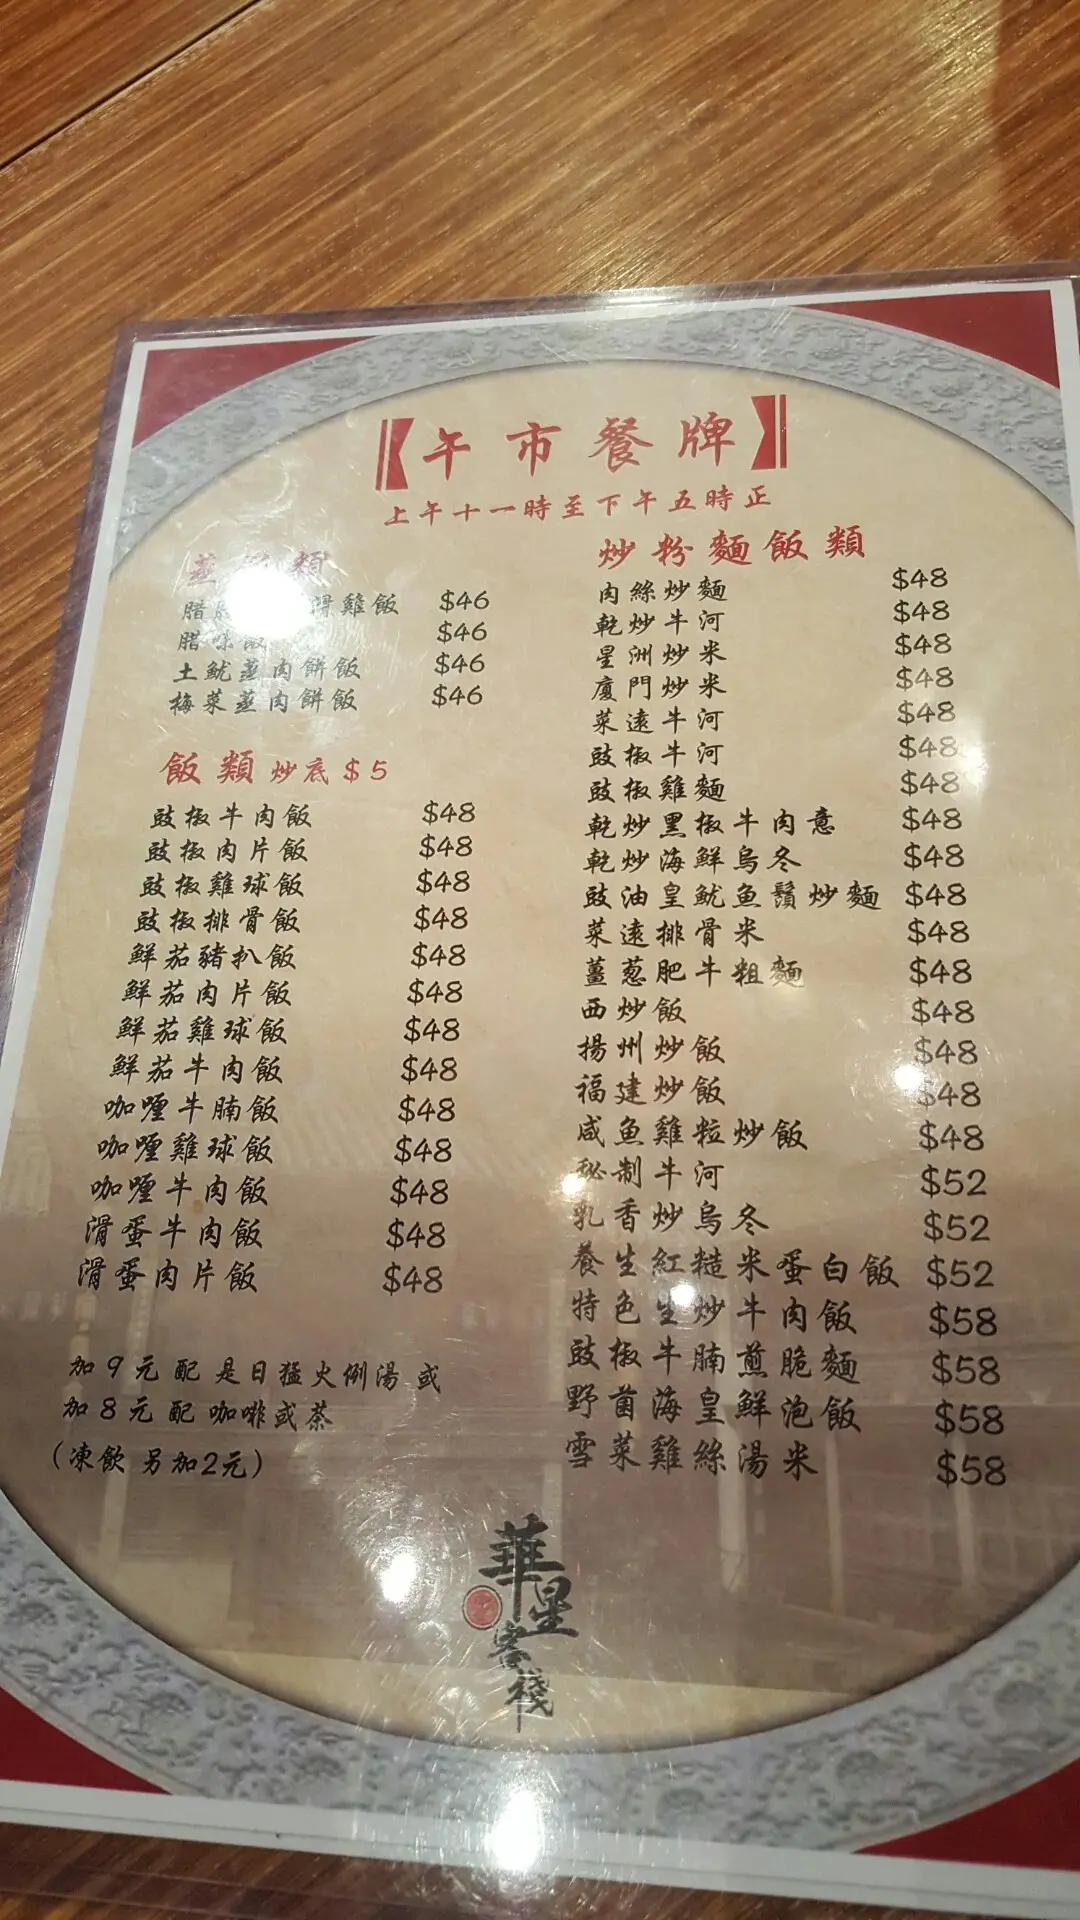 【午市餐牌】
上午十一時至下午五時正
蒸 類
腊 滑雞飯 $46
腊味飯 $46
土魷蒸肉餅飯 $46
梅菜蒸肉餅飯 $46
飯類 炒底 $5
豉椒牛肉飯 $48
豉椒肉片飯 $48
豉椒雞球飯 $48
豉椒排骨飯 $48
鮮茄豬扒飯 $48
鮮茄肉片飯 $48
鮮茄雞球飯 $48
鮮茄牛肉飯 $48
咖喱牛腩飯 $48
咖喱雞球飯 $48
咖喱牛肉飯 $48
滑蛋牛肉飯 $48
滑蛋肉片飯 $48
加9元配 是日猛火例湯 或
加8元配 咖啡或茶
(凍飲 另加2元)
炒粉麵飯類
肉絲炒麵 $48
乾炒牛河 $48
星洲炒米 $48
廈門炒米 $48
菜遠牛河 $48
豉椒牛河 $48
豉椒雞麵 $48
乾炒黑椒牛肉意 $48
乾炒海鮮烏冬 $48
豉油皇魷魚鬚炒麵 $48
菜遠排骨米 $48
薑葱肥牛粗麵 $48
西炒飯 $48
揚州炒飯 $48
福建炒飯 $48
咸魚雞粒炒飯 $48
秘制牛河 $52
乳香炒烏冬 $52
養生紅糙米蛋白飯 $52
特色生炒牛肉飯 $58
豉椒牛腩煎脆麵 $58
野菌海皇鮮泡飯 $58
雪菜雞絲湯米 $58
華星客棧